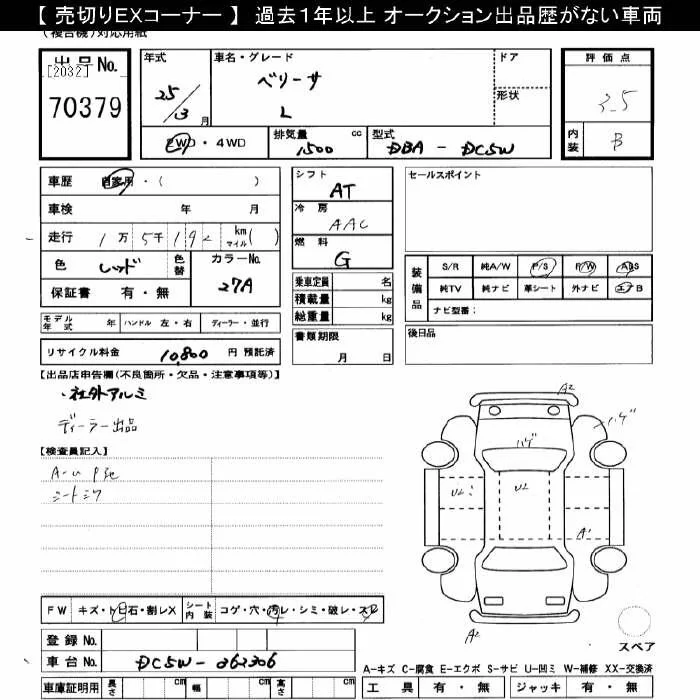 【 売切りEXコーナー 】 過去1年以上 オークション出品歴がない車両
(複合機)対応用紙
出品No.
[2032]
70379
年式
25/3月
車名・グレード
ベリーサ
L
ドア
形状
評価点
3.5
内装
B
2WD・4WD
排気量 1500 cc
型式 DBA - DC5W
車歴 自家用・( )
車検 年 月
走行 1万5千192 km マイル( )
色 レッド 色替
カラーNo. 27A
保証書 有・無
シフト
AT
冷房
AAC
燃料
G
乗車定員 名
積載量 kg
総重量 kg
セールスポイント
装備品
S/R 純A/W P/S P/W ABS
純TV 純ナビ 革シート 外ナビ エアB
ナビ型番:
モデル年式 年 ハンドル 左・右 ディーラー・並行
リサイクル料金 10,800 円 預託済
書類期限
月 日
後日品
【出品店申告欄(不良箇所・欠品・注意事項等)】
・社外アルミ
ディーラー出品
【検査員記入】
シートシワ
A2
ハゲ
ハゲ
U2
U2
A1
A2
スペア
FW キズ・トビ石・割レX
シート内装 コゲ・穴・汚レ・シミ・破レ・スレ
登録No.
車台No. DC5W-262306
車庫証明用 長さ cm 幅 cm 高さ cm
A−キズ C−腐食 E−エクボ S−サビ U−凹ミ W−補修 XX−交換済
工具 有・無 ジャッキ 有・無